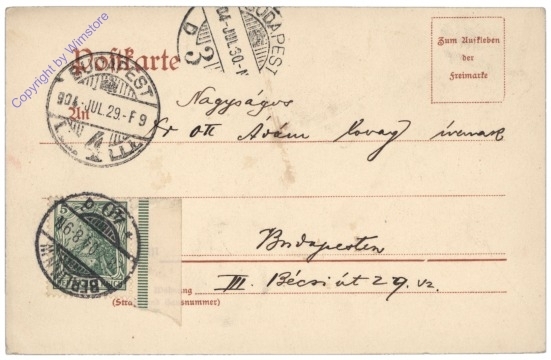 Copyright by Wimstore
Postkarte
BUDAPEST
904-JUL.29-F9
BUDAPEST
904-JUL.30-
D
3
Zum Aufkleben
der
Freimarke
An
Nagyságos
Ott Ádám lovag
BERLIN
5
Budapesten
III. Bécsi út 29. sz.
(Stra
nummer)